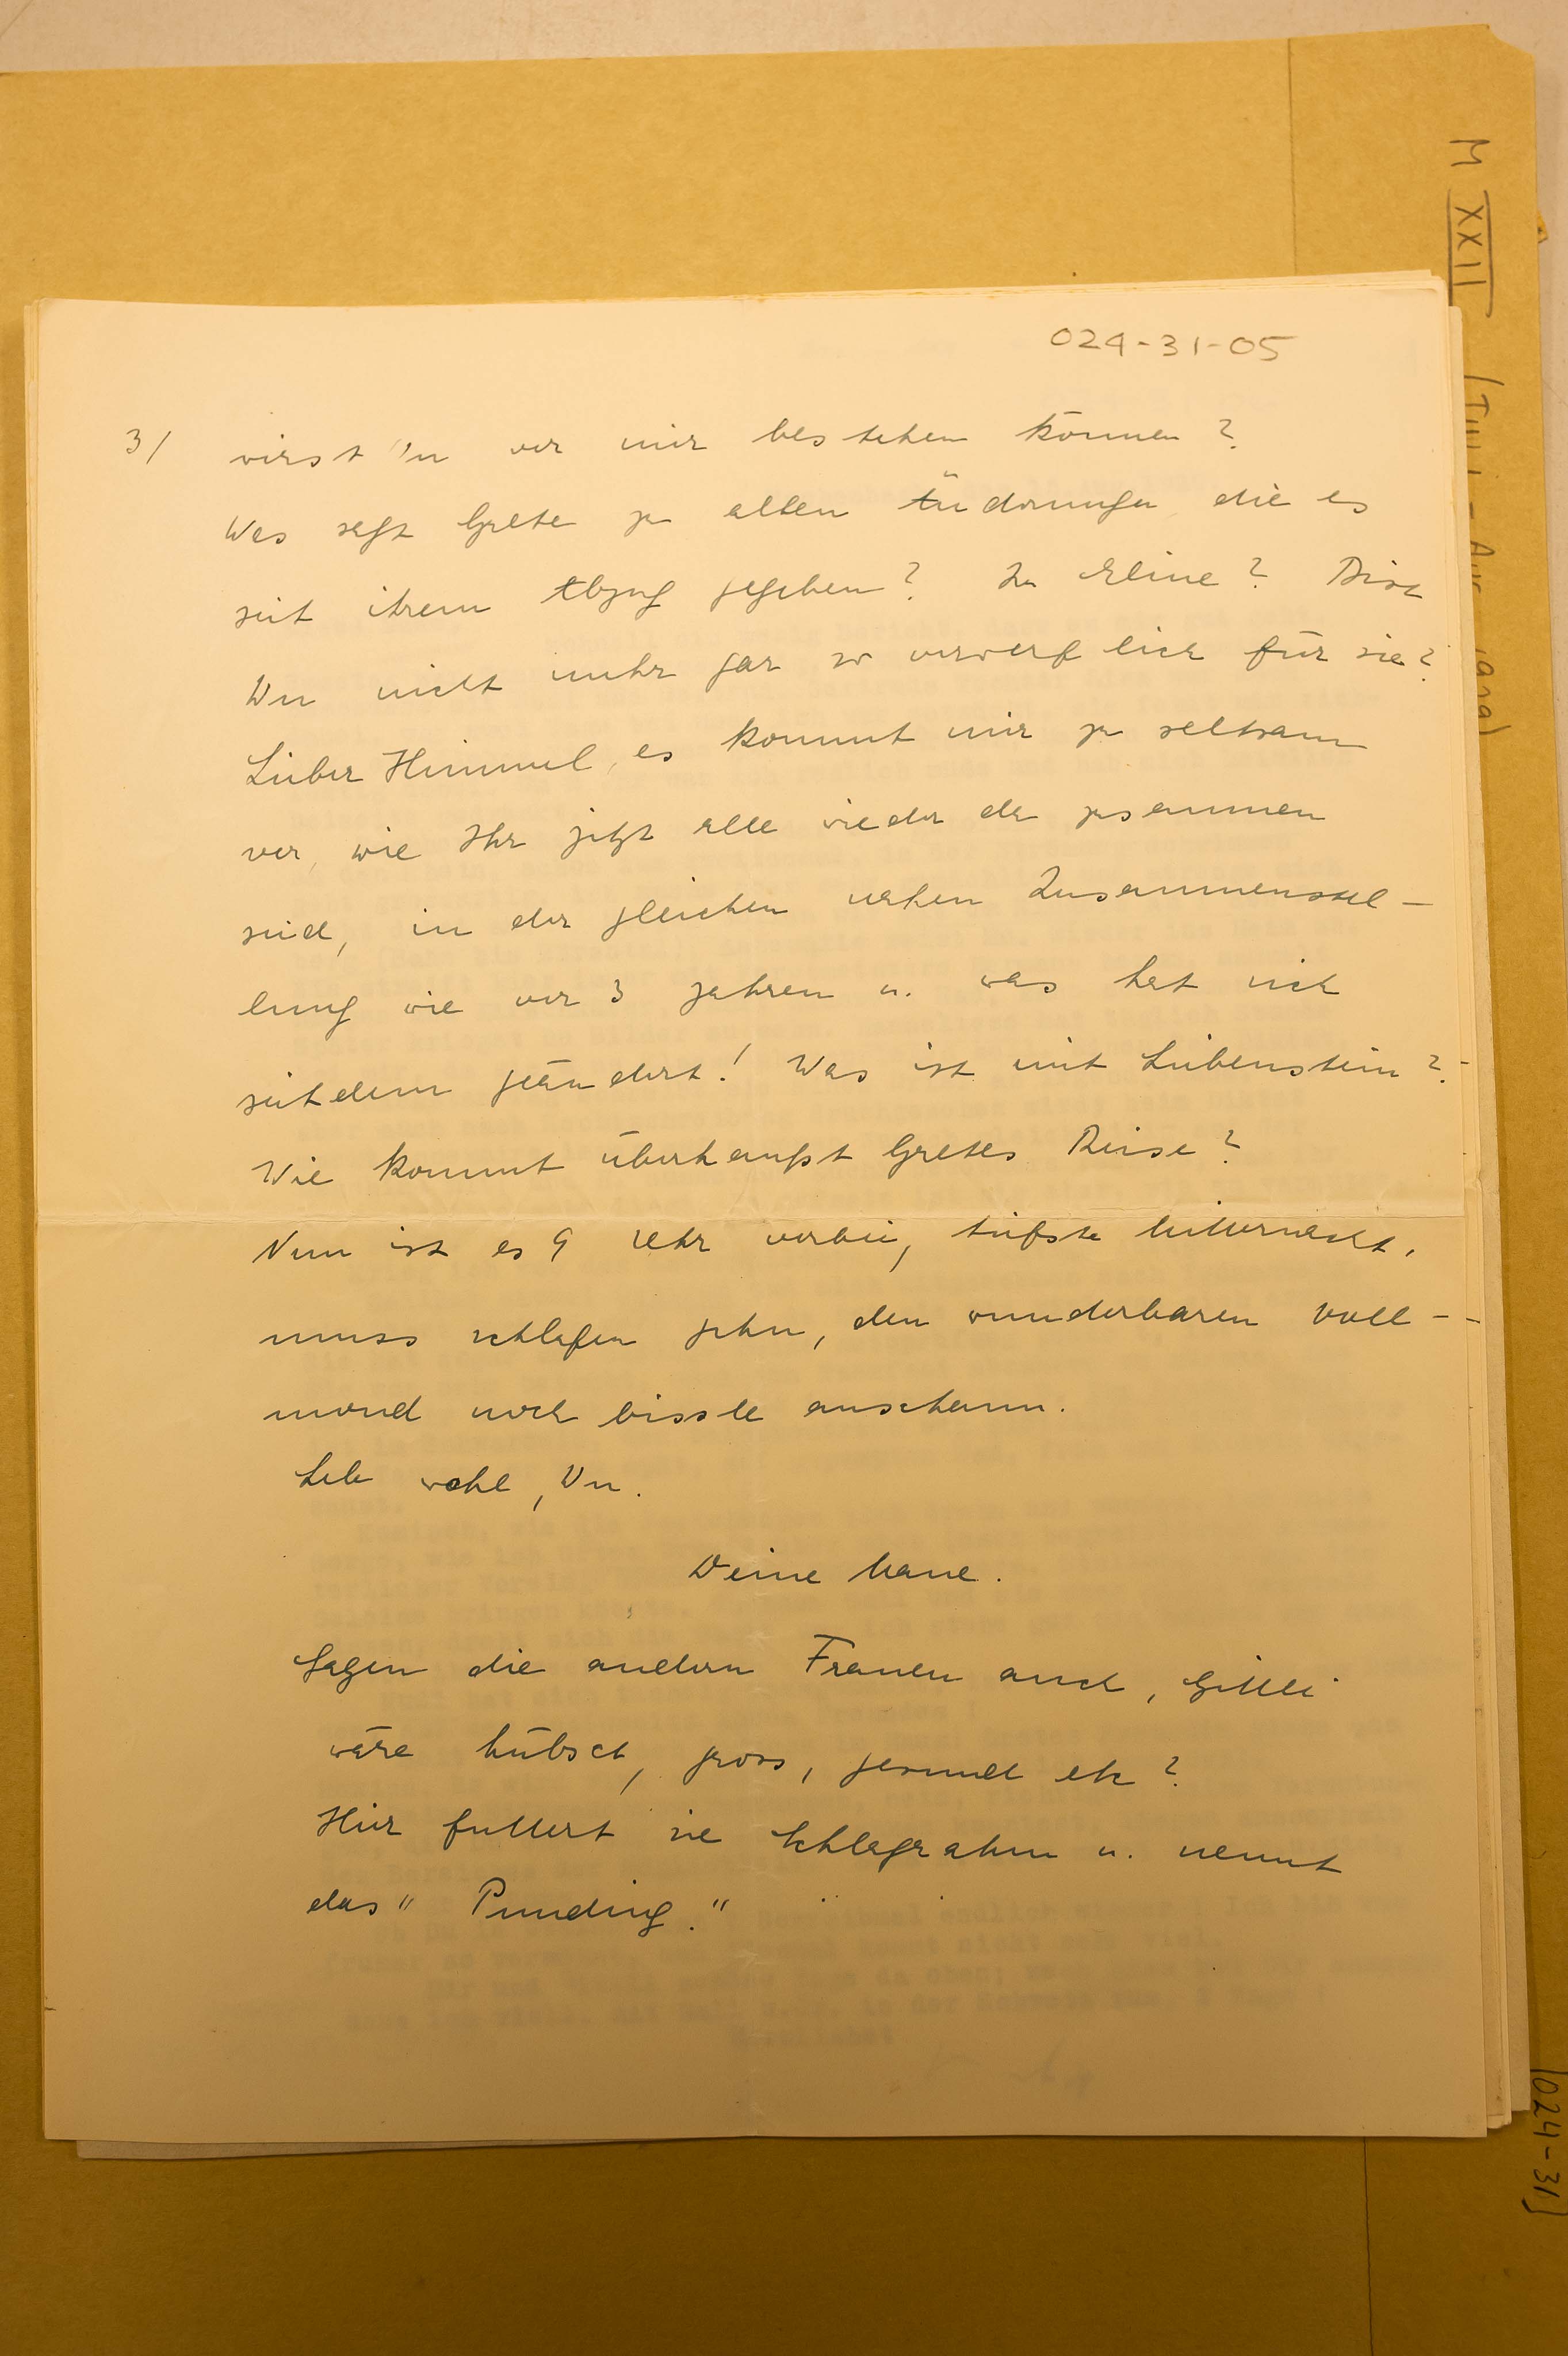 024-31-05
3/ wirst 'n vor mir bestehen können?
Was sagt Grete zu allen Änderungen die es
seit ihrem Abzug gegeben? Zu Eline? Bist
Un nicht mehr gar so verwerflich für sie?
Lieber Himmel, es kommt mir zu seltsam
vor, wie Ihr jetzt alle wieder da zusammen
seid, in der gleichen nahen Zusammenstel-
lung wie vor 3 Jahren u. was hat sich
seitdem geändert! Was ist mit Liebenstein?
Wie kommt überhaupt Gretes Reise?
Nun ist es 9 Uhr vorbei, tiefste Mitternacht,
muss schlafen gehn, den wunderbaren Voll-
mond noch bissle anschaun.
Leb wohl, Un.
Deine Mane.
Sagen die andern Frauen auch, Gitti
wäre hübsch, gross, gesund etc?
Hier futtert sie Schlagrahm u. nennt
das "Punding."
M XXII
(024-31)